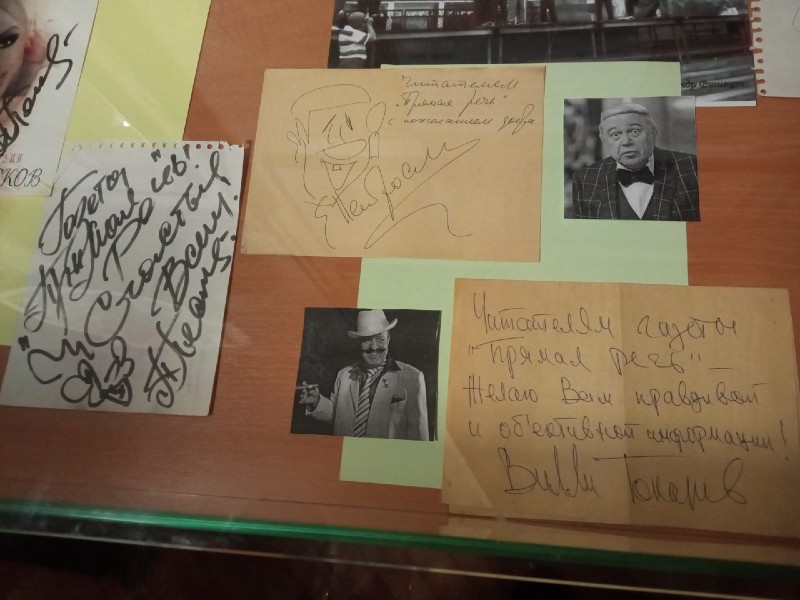 СКОВ
Газета
"Прямая
Речь"!
Счастья
Всем!
Читателем
"Прямая речь"
с пожеланием добра
ЕПетросян
Читателям газеты
"Прямая речь" –
Желаю Вам правдивой
и об'ективной информации!
Вилли Токарев